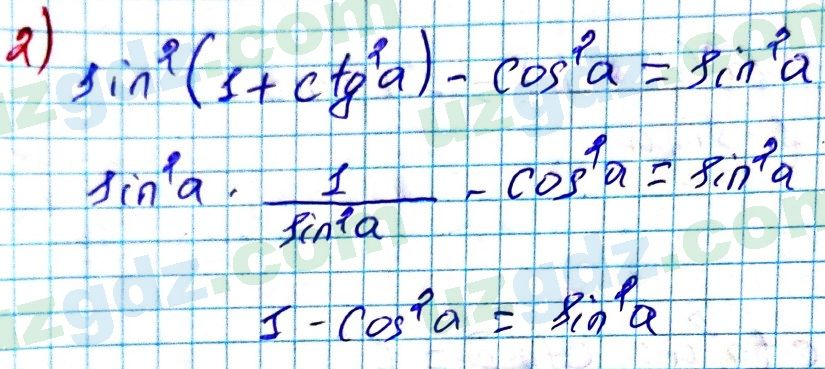 2) sin²(1 + ctg²a) - cos²a = sin²a
sin²a · 1/sin²a - cos²a = sin²a
1 - cos²a = sin²a